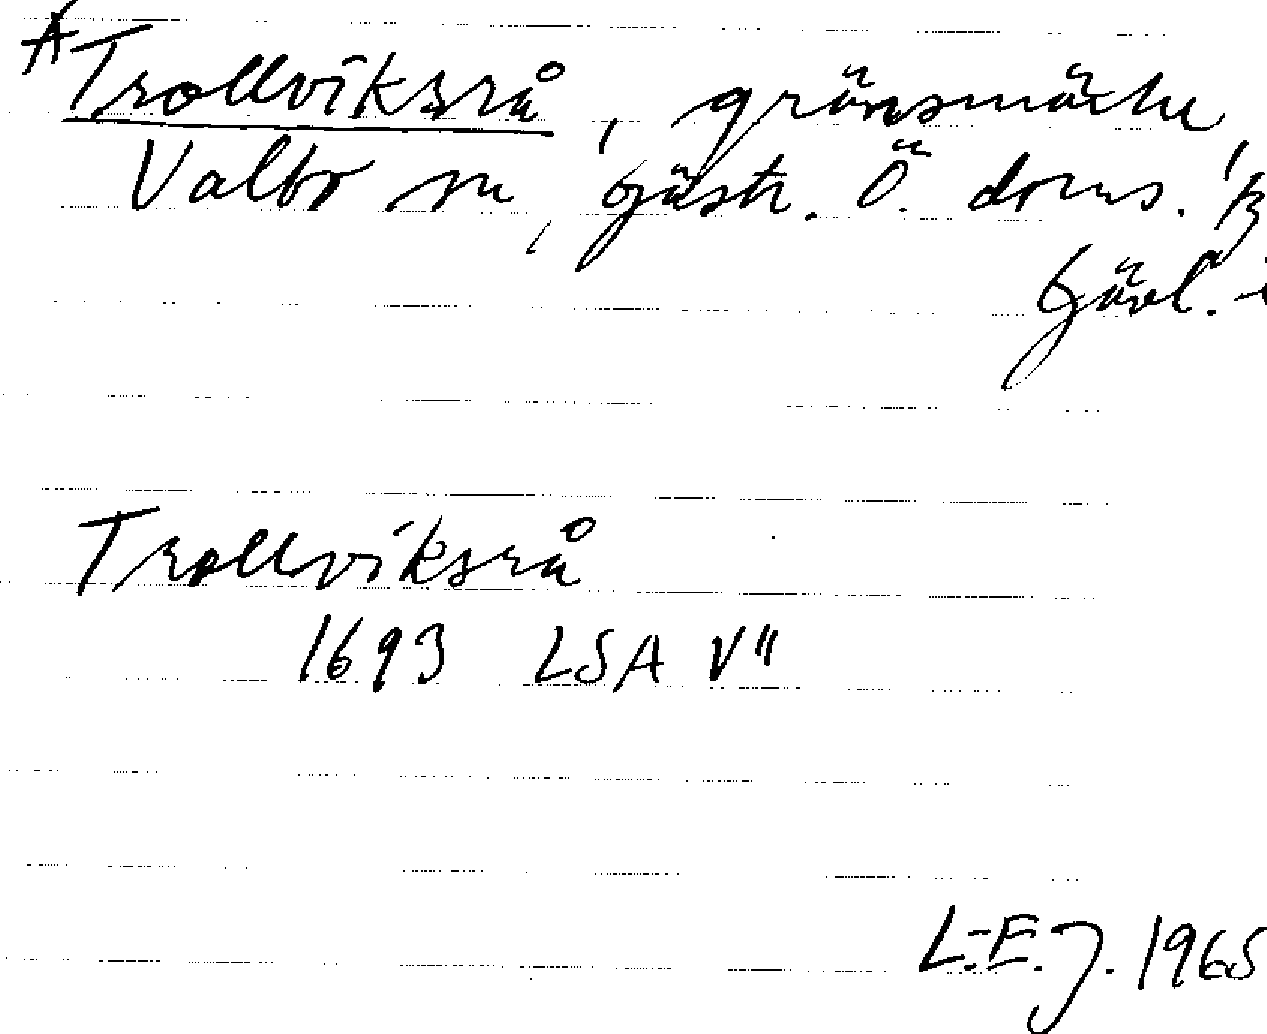 Trollviksrå, gränsmärke,
Valbo sn, Gästr. Ö. doms.
Gävl.
Trollviksrå
1693 LSA V"
L.-E.J. 1965